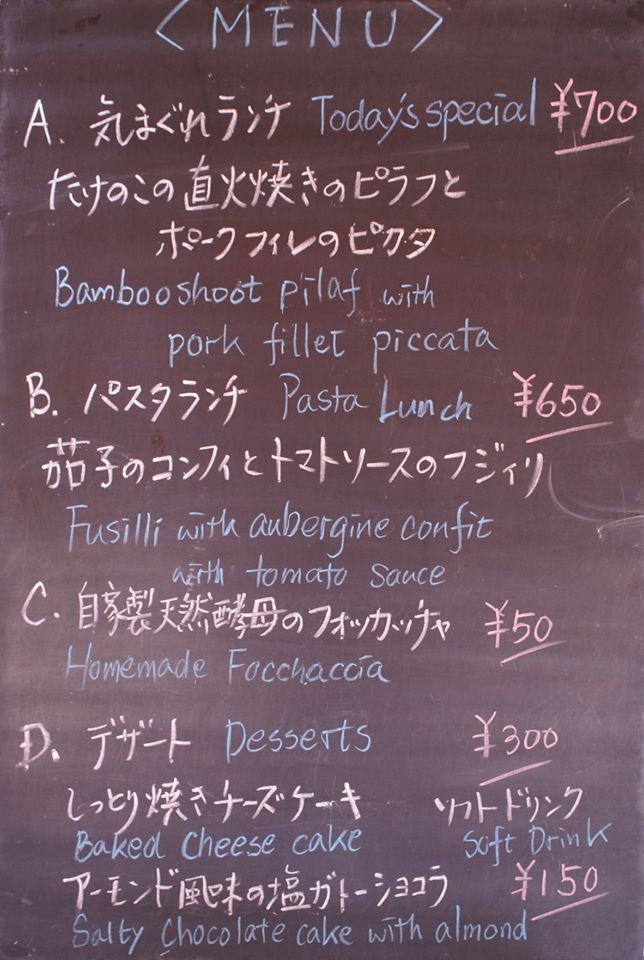 <MENU>
A. 気まぐれランチ Today's special ¥700
たけのこの直火焼きのピラフと
ポークフィレのピカタ
Bamboo shoot pilaf with
pork fillet piccata
B. パスタランチ Pasta Lunch ¥650
茄子のコンフィとトマトソースのフジィリ
Fusilli with aubergine confit
with tomato sauce
C. 自家製天然酵母のフォッカッチャ ¥50
Homemade Focchaccia
D. デザート Desserts ¥300
しっとり焼きチーズケーキ ソフトドリンク
Baked Cheese cake Soft Drink
アーモンド風味の塩ガトーショコラ ¥150
Salty Chocolate cake with almond